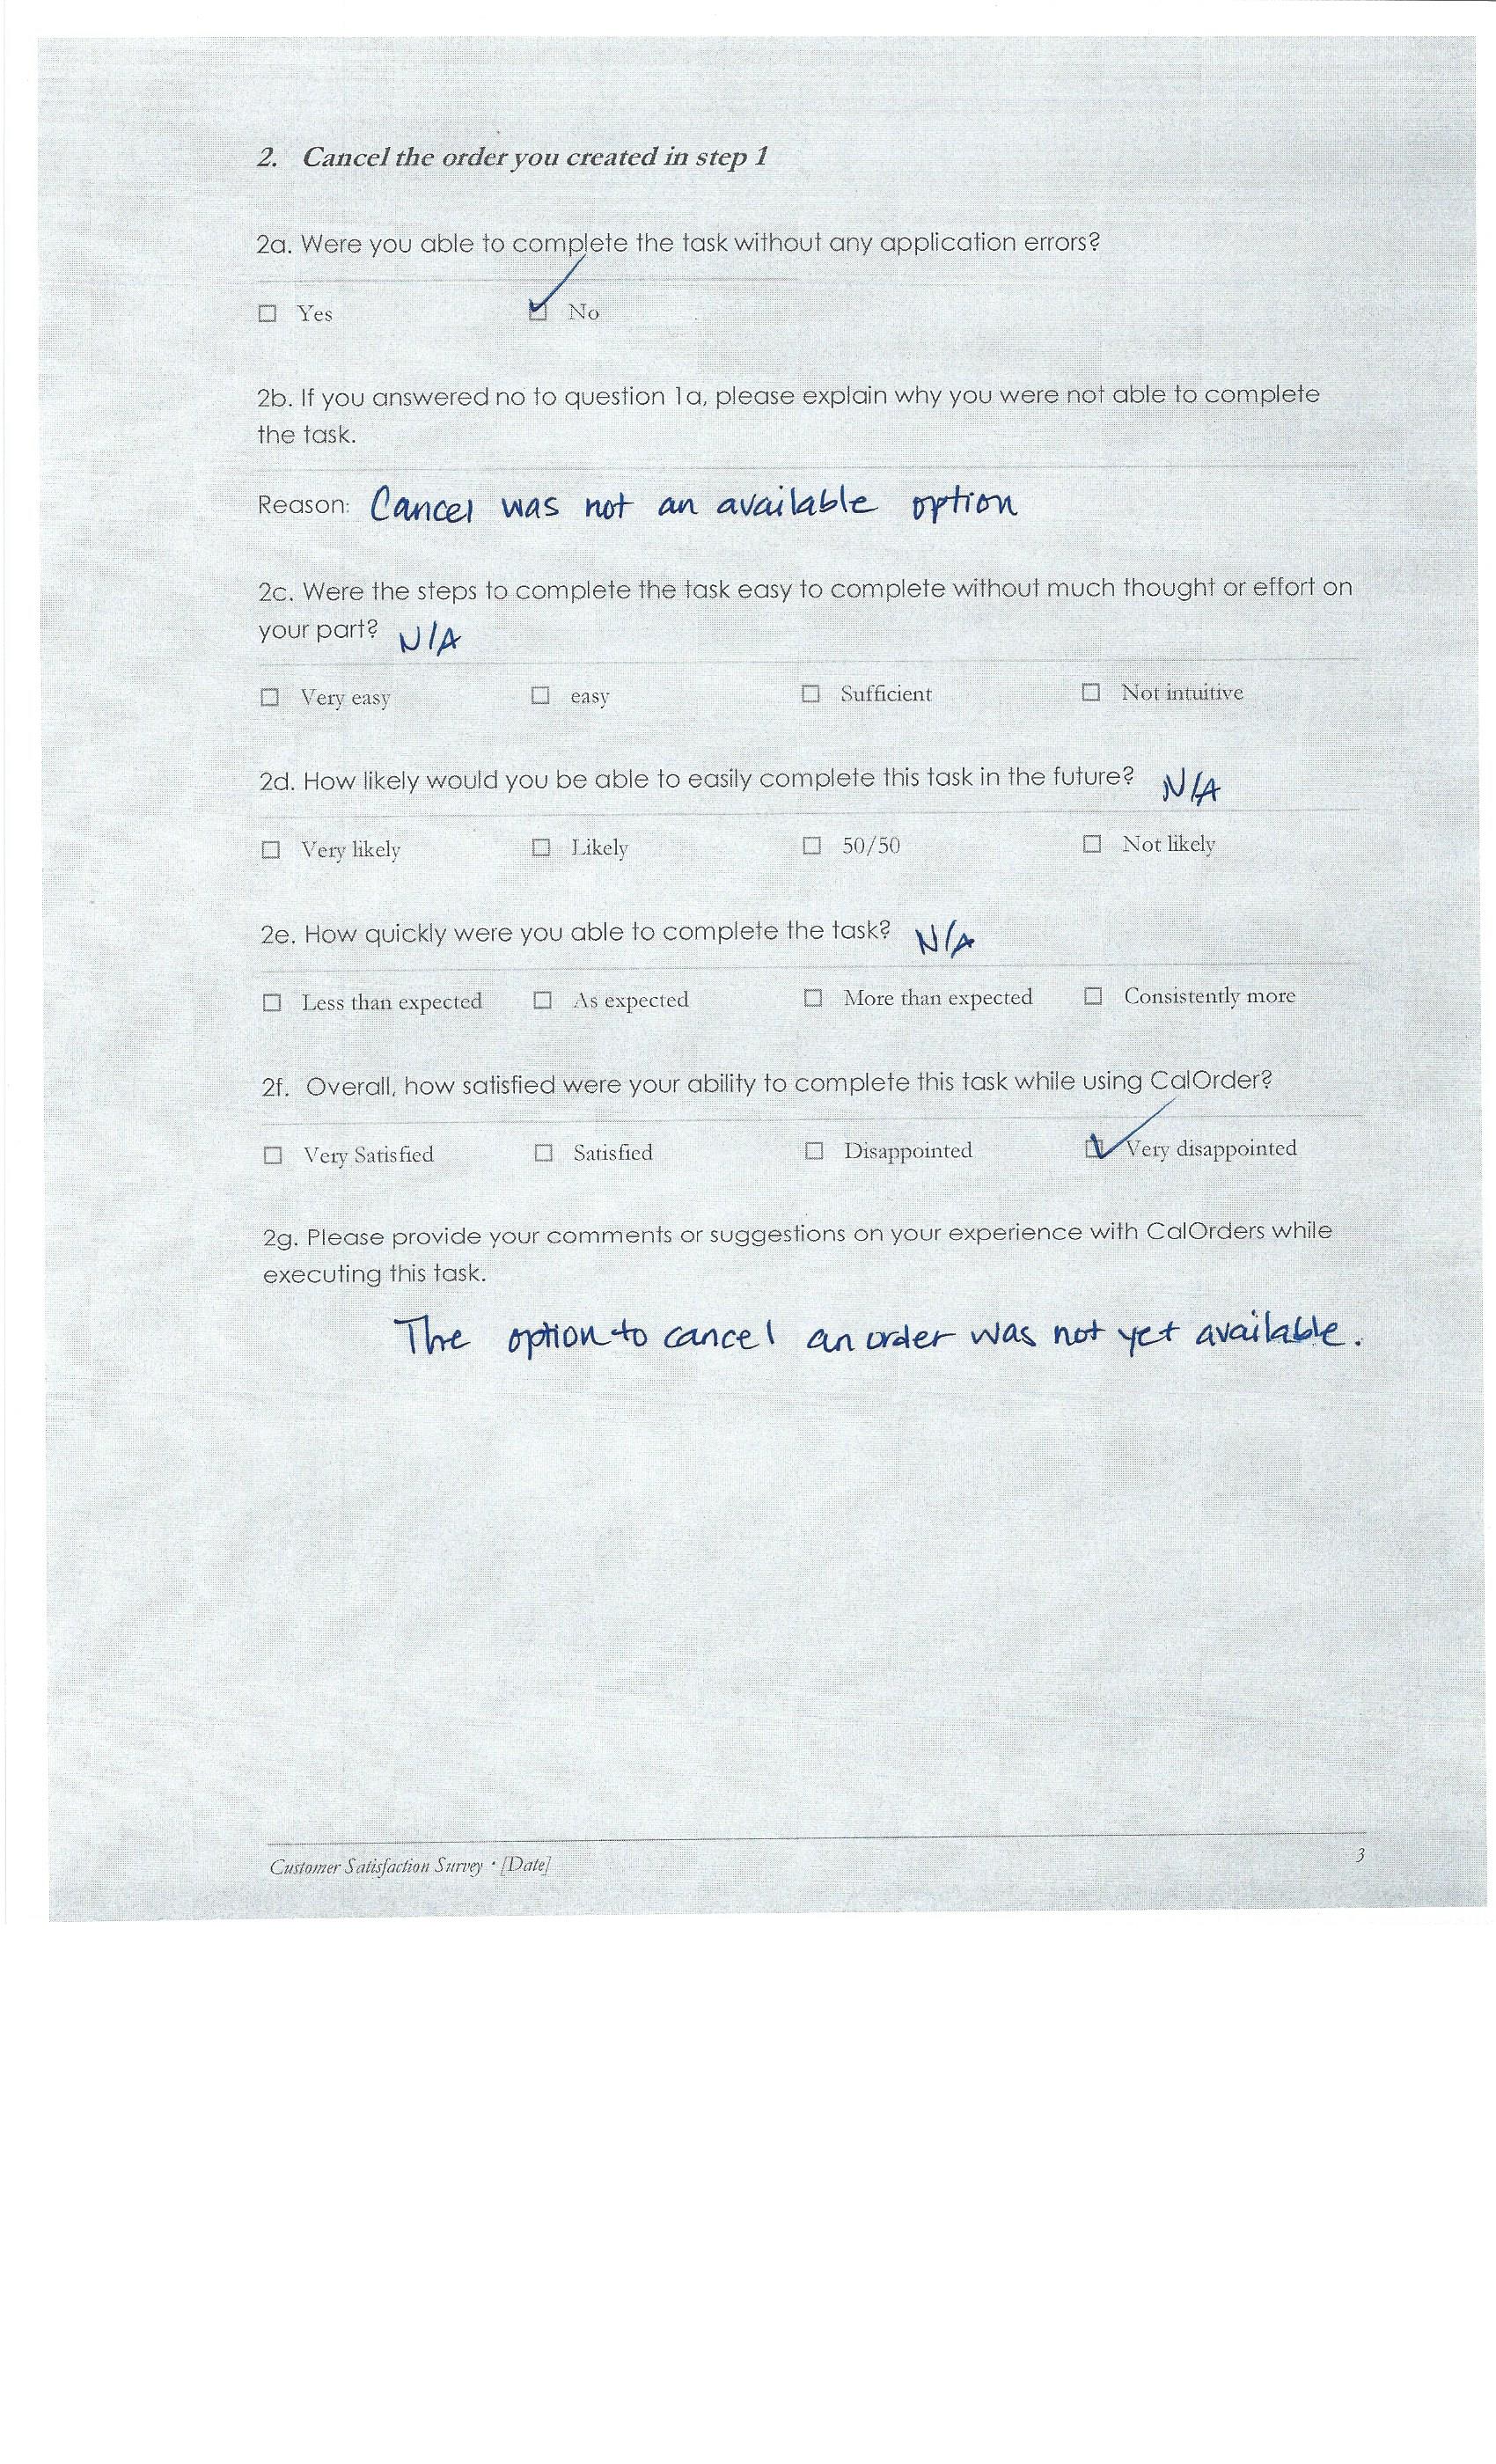 2. Cancel the order you created in step 1
2a. Were you able to complete the task without any application errors?
☐ Yes ☑ No
2b. If you answered no to question 1a, please explain why you were not able to complete
the task.
Reason: Cancel was not an available option
2c. Were the steps to complete the task easy to complete without much thought or effort on
your part? N/A
☐ Very easy ☐ easy ☐ Sufficient ☐ Not intuitive
2d. How likely would you be able to easily complete this task in the future? N/A
☐ Very likely ☐ Likely ☐ 50/50 ☐ Not likely
2e. How quickly were you able to complete the task? N/A
☐ Less than expected ☐ As expected ☐ More than expected ☐ Consistently more
2f. Overall, how satisfied were your ability to complete this task while using CalOrder?
☐ Very Satisfied ☐ Satisfied ☐ Disappointed ☑ Very disappointed
2g. Please provide your comments or suggestions on your experience with CalOrders while
executing this task.
The option to cancel an order was not yet available.
Customer Satisfaction Survey • [Date] 3